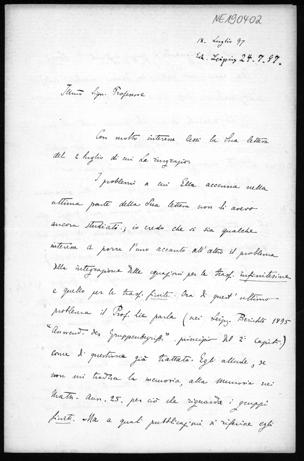 NE190402
12. Luglio 97
24.7.97.
Illmo Sign. Professore
Con molto interesse lessi la Sua lettera
del 2 luglio di cui La ringrazio.
I problemi a cui Ella accenna nella
ultima parte della Sua lettera non li avevo
ancora studiati; io credo che vi sia qualche
interesse a porre l'uno accanto all'altro il problema
della integrazione delle equazioni per le trasf. infinitesime
e quello per le trasf. finite. Ora di quest'ultimo
problema il Prof. Lie parla (nei Leipz. Berichte 1895
"des Gruppenbegriffs" principio del 2° capitolo)
come di questione già trattata. Egli allude, se
non mi tradisce la memoria, alla memoria nei
Math. Ann. 25. per ciò che riguarda i gruppi
finiti. Ma a quali pubblicazioni si riferisce egli